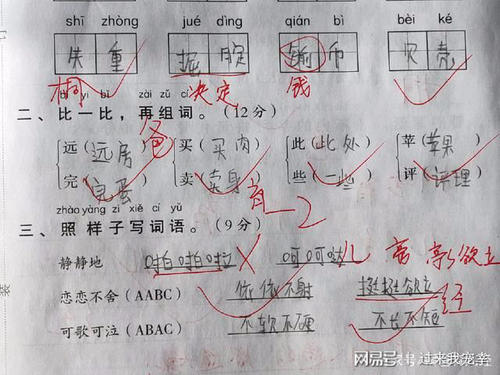 shī zhòng jué dìng qián bì bèi ké
失 重 掘 腚 币 贝 壳
决定 钱
bǐ yì bǐ zài zǔ cí
二、比一比，再组词。（12分）
远（远房） 买（买肉） 此（此处） 苹（苹果）
完（完蛋） 卖（卖身） 些（一些） 评（评理）
-2
zhào yàng zi xiě cí yǔ
三、照样子写词语。（9分）
静静地 啪啪啪 呵呵哒
恋恋不舍（AABC） 依依不射 挺挺欲立
可歌可泣（ABAC） 不软不硬 不长不短
网易号 过来我宠幸